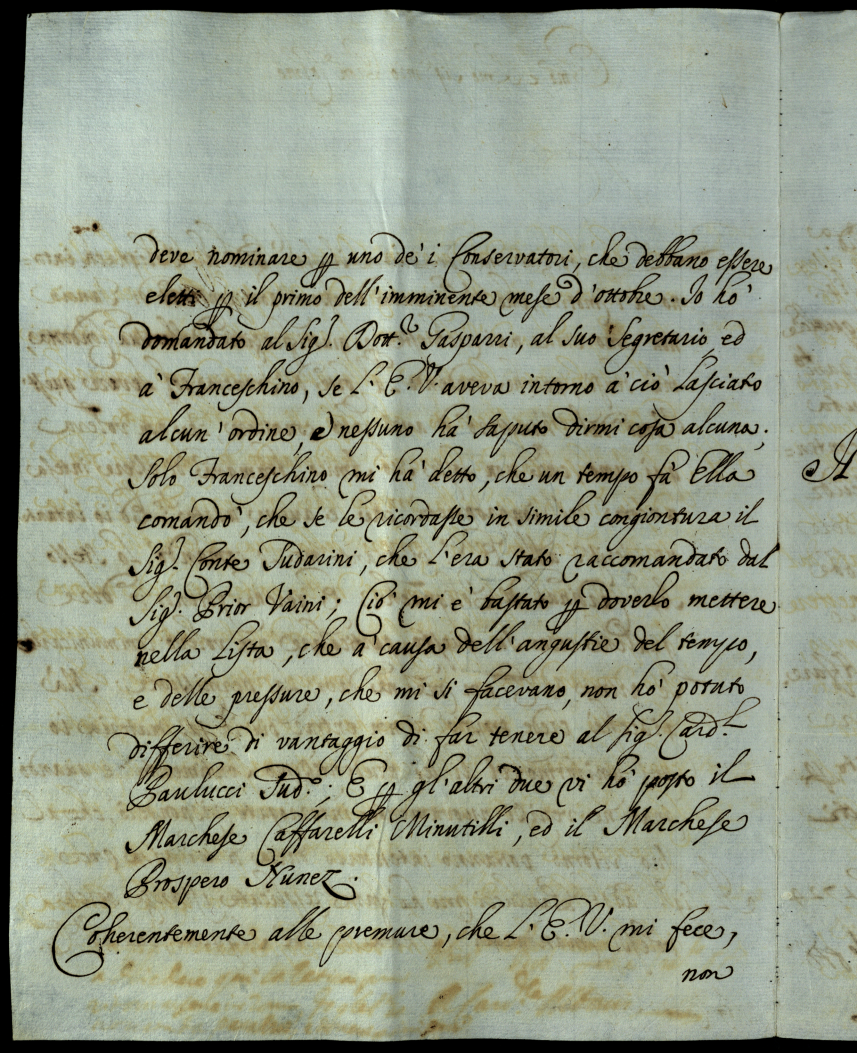 deve nominare ꝑ uno de' i Conservatori, che debbano essere
eletti ꝑ il primo dell'imminente mese d'ottobre. Io hò
domandato al Sig.r Dott.r Gasparri, al suo Segretario, ed
à Franceschino, se L'E.V. aveva intorno à ciò lasciato
alcun'ordine, e nessuno hà saputo dirmi cosa alcuna;
Solo Franceschino mi hà detto, che un tempo fà Ella
comandò, che se le ricordasse in simile congiontura il
Sig.r Conte Tudarini, che l'era stato raccomandato dal
Sig.r Prior Vaini; Ciò mi è bastato ꝑ doverlo mettere
nella Lista, che à causa dell'angustie del tempo,
e delle pressure, che mi si facevano, non hò potuto
differire di vantaggio di far tenere al Sig.r Card.l
Paulucci Sud.o; E ꝑ gl'altri due vi hò posto il
Marchese Caffarelli Minutilli, ed il Marchese
Prospero Nunez.
Coherentemente alle premure, che L'E.V. mi fece,
non